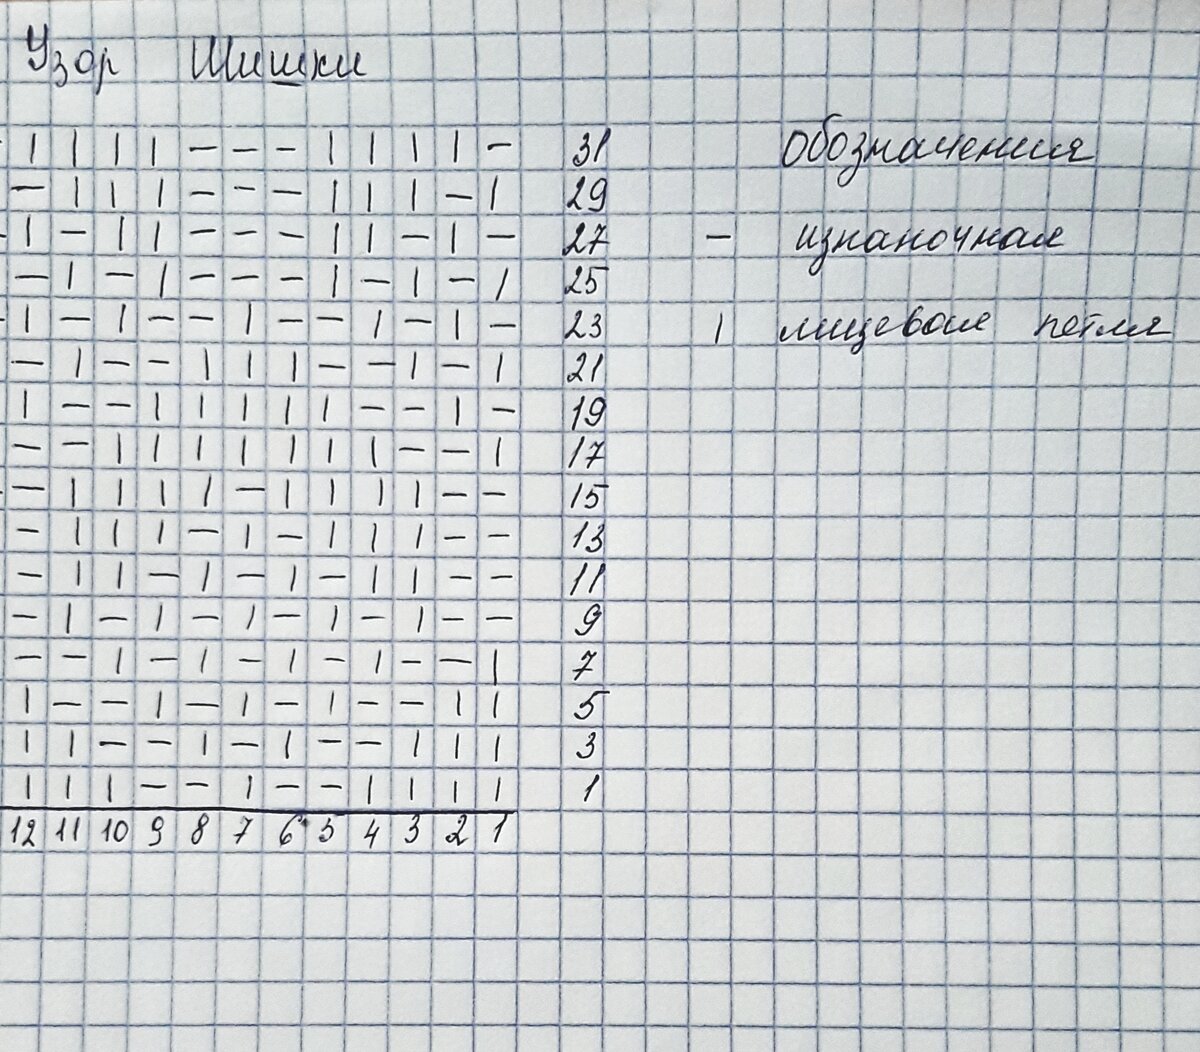 Узор Шишки
Обозначения
– изнаночная
| лицевая петля
| | | | – – – | | | | – 31
– | | | – – – | | | – | 29
| – | | – – – | | – | – 27
– | – | – – – | – | – | 25
| – | – – | – – | – | – 23
– | – – | | | – – | – | 21
| – – | | | | | – – | – 19
– – | | | | | | | – – | 17
– | | | | – | | | | – – 15
– | | | – | – | | | – – 13
– | | – | – | – | | – – 11
– | – | – | – | – | – – 9
– – | – | – | – | – – | 7
| – – | – | – | – – | | 5
| | – – | – | – – | | | 3
| | | – – | – – | | | | 1
12 11 10 9 8 7 6 5 4 3 2 1